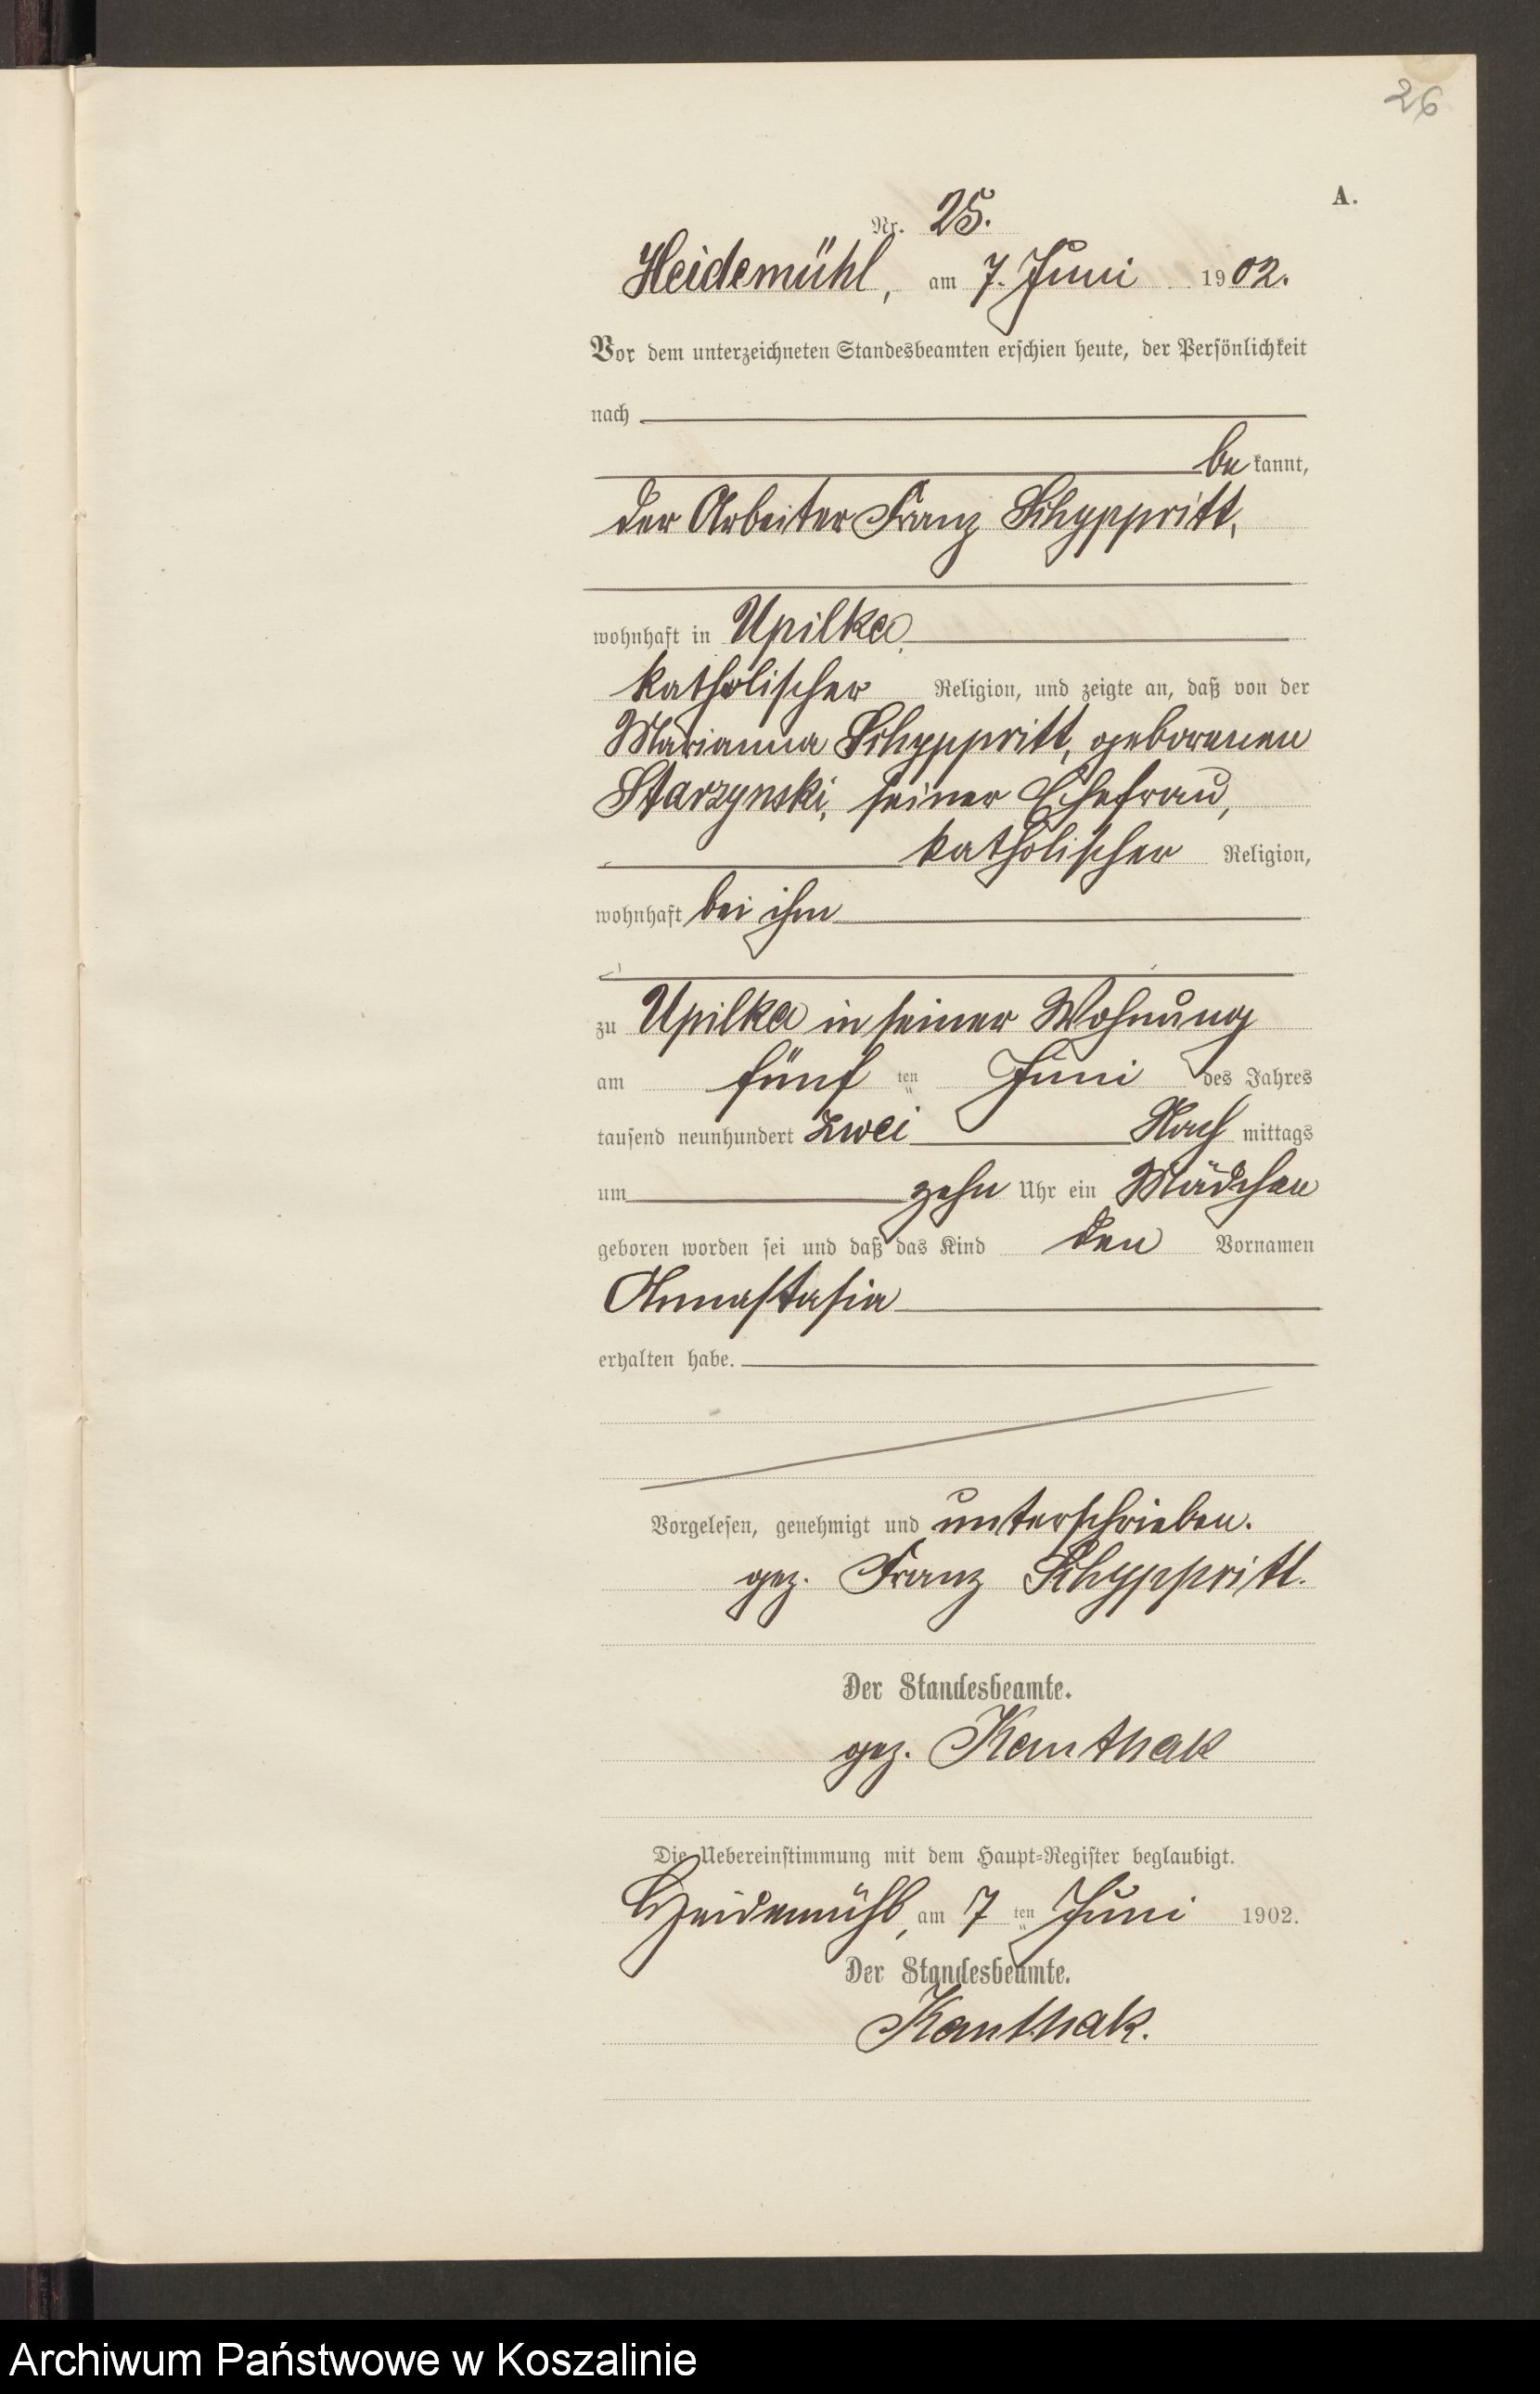 26
A.
Nr. 25.
Heidemühl, am 7. Juni 1902.
Vor dem unterzeichneten Standesbeamten erschien heute, der Persönlichkeit
nach
be kannt,
der Arbeiter Franz Schyppritt,
wohnhaft in Upilka,
katholischer Religion, und zeigte an, daß von der
Marianna Schyppritt, geborenen
Starzynski, seiner Ehefrau,
katholischer Religion,
wohnhaft bei ihm
zu Upilka in seiner Wohnung
am fünf ten Juni des Jahres
tausend neunhundert zwei Nach mittags
um zehn Uhr ein Mädchen
geboren worden sei und daß das Kind den Vornamen
Annastasia
erhalten habe.
Vorgelesen, genehmigt und unterschrieben.
gez. Franz Schyppritt.
Der Standesbeamte.
gez. Kanthak
Die Uebereinstimmung mit dem Haupt-Register beglaubigt.
Heidemühl, am 7 ten Juni 1902.
Der Standesbeamte.
Kanthak.
Archiwum Państwowe w Koszalinie